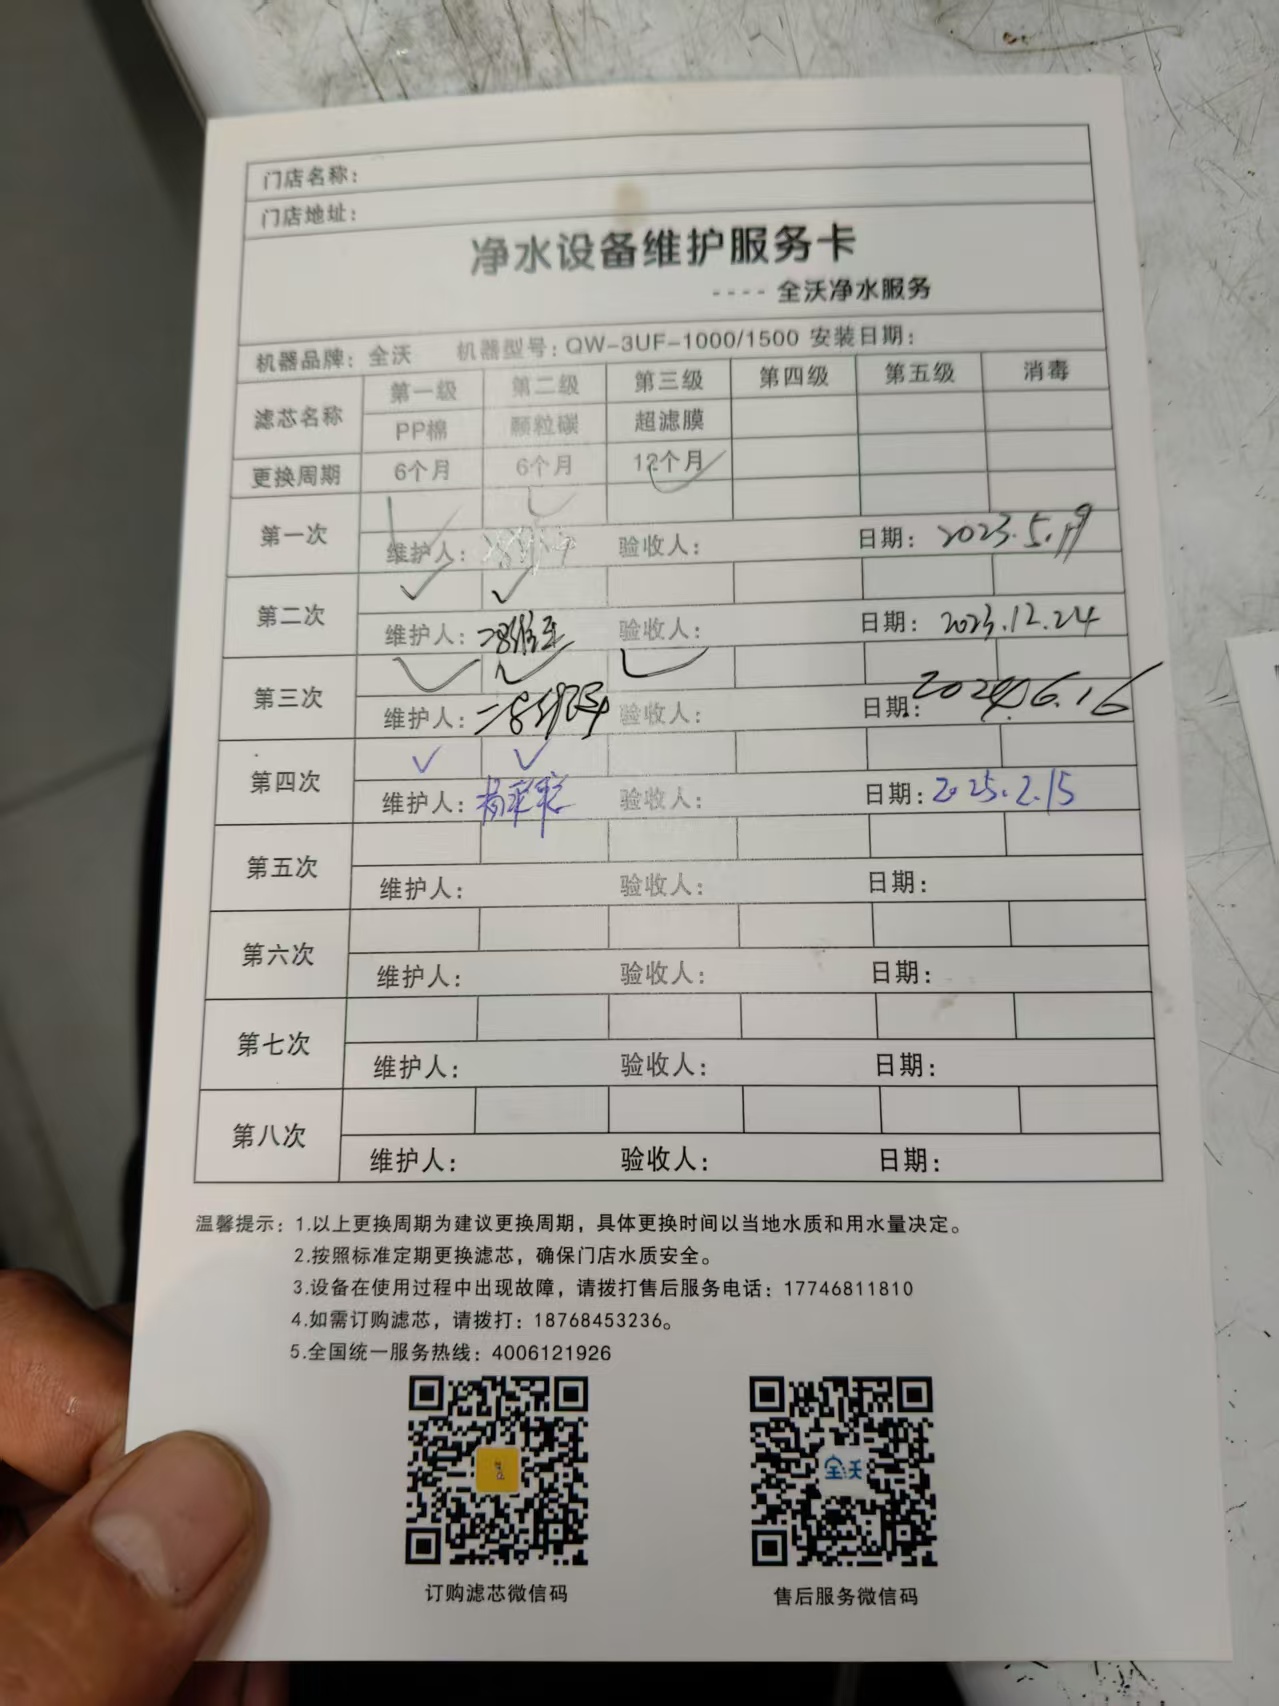 门店名称：
门店地址：
净水设备维护服务卡
---- 全沃净水服务
机器品牌：全沃 机器型号：QW-3UF-1000/1500 安装日期：
滤芯名称 第一级 第二级 第三级 第四级 第五级 消毒
PP棉 颗粒碳 超滤膜
更换周期 6个月 6个月 12个月
第一次 维护人： 验收人： 日期：2023.5.19
第二次 维护人： 验收人： 日期：2023.12.24
第三次 维护人： 验收人： 日期：2024.6.16
第四次 维护人： 验收人： 日期：2025.2.15
第五次 维护人： 验收人： 日期：
第六次 维护人： 验收人： 日期：
第七次 维护人： 验收人： 日期：
第八次 维护人： 验收人： 日期：
温馨提示：1.以上更换周期为建议更换周期，具体更换时间以当地水质和用水量决定。
2.按照标准定期更换滤芯，确保门店水质安全。
3.设备在使用过程中出现故障，请拨打售后服务电话：17746811810
4.如需订购滤芯，请拨打：18768453236。
5.全国统一服务热线：4006121926
全沃
订购滤芯微信码 售后服务微信码